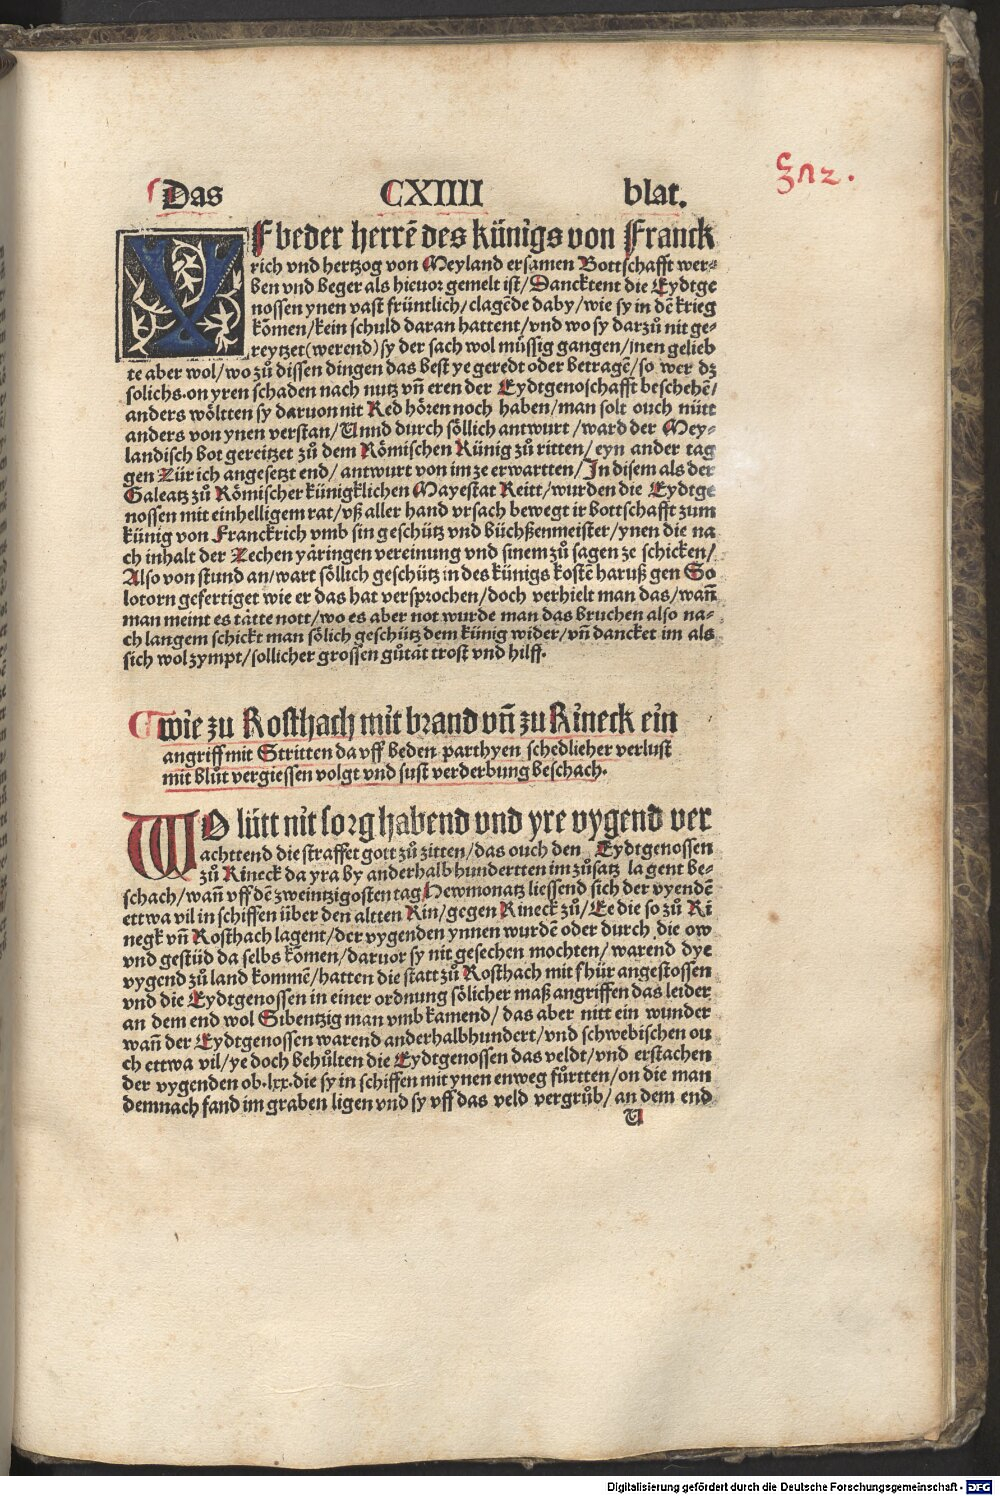 Das CXIIII blat.
Vf beder herrē des künigs von Franck
rich vnd hertzog von Meyland ersamen Bottschafft wer-
ben vnd beger als hieuor gemelt ist/Dancktent die Eydtge
nossen ynen vast früntlich/clagēde daby/wie sy in dē krieg
kōmen/kein schuld daran hattent/vnd wo sy darzů nit ge-
reytzet(werend)sy der sach wol müssig gangen/jnen gelieb
te aber wol/wo zů dissen dingen das best ye geredt oder betragē/so wer dz
solichs.on yren schaden nach nutz vñ eren der Eydtgenoschafft beschehē/
anders wöltten sy daruon nit Red hören noch haben/man solt ouch nütt
anders von ynen verstan/Unnd durch söllich antwurt/ward der Mey-
landisch bot gereitzet zů dem Römischen Künig zů ritten/eyn ander tag
gen Zürich angesetzt end/antwurt von im ze erwartten/In disem als der
Galeatz zů Römischer künigklichen Mayestat Reitt/wurden die Eydtge
nossen mit einhelligem rat/vß aller hand vrsach bewegt ir bottschafft zum
künig von Franckrich vmb sin geschütz vnd büchßenmeister/ynen die na
ch inhalt der Zechen yäringen vereinung vnd sinem zů sagen ze schicken/
Also von stund an/wart söllich geschütz in des künigs kostē haruß gen So
lotorn gefertiget wie er das hat versprochen/doch verhielt man das/wañ
man meint es tätte nott/wo es aber not wurde man das bruchen also na-
ch langem schickt man sölich geschütz dem künig wider/vñ dancket im als
sich wol zympt/sollicher grossen gůtät trost vnd hilff.
wie zu Rosthach mit brand vñ zu Rineck ein
angriff mit Stritten da vff beden parthyen schedlieher verlust
mit blůt vergiessen volgt vnd sust verderbung beschach.
WO lütt nit sorg habend vnd yre vygend ver
achttend die straffet gott zů zitten/das ouch den Eydtgenossen
zů Rineck da yra by anderhalb hundertten im zůsatz lagent be-
schach/wañ vff dē zweintzigosten tag Hewmonatz liessend sich der vyendē
ettwa vil in schiffen über den altten Rin/gegen Rineck zů/Ee die so zů Ri
negk vñ Rosthach lagent/der vygenden ynnen wurdē oder durch die ow
vnd gestüd da selbs kōmen/daruor sy nit gesechen mochten/warend dye
vygend zů land kommē/hatten die statt zů Rosthach mit fhür angestossen
vnd die Eydtgenossen in einer ordnung sölicher maß angriffen das leider
an dem end wol Sibentzig man vmb kamend/das aber nitt ein wunder
wañ der Eydtgenossen warend anderhalbhundert/vnd schwebischen ou
ch ettwa vil/ye doch behůlten die Eydtgenossen das veldt/vnd erstachen
der vygenden ob.lxx.die sy in schiffen mit ynen enweg fůrtten/on die man
demnach fand im graben ligen vnd sy vff das veld vergrůb/an dem end
U
Digitalisierung gefördert durch die Deutsche Forschungsgemeinschaft - DFG